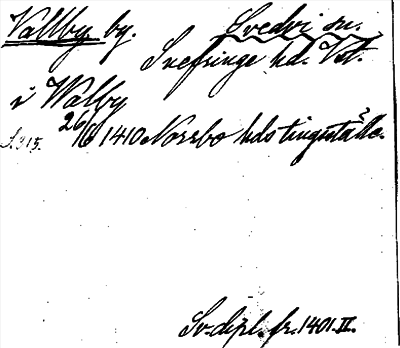 Vallby by. Svedvi sn.
Snefringe hd. Vst.
i Walby
S. 315. 26/6 1410 Norrbo hds tingställe.
Sv. dipl. fr. 1401. II.